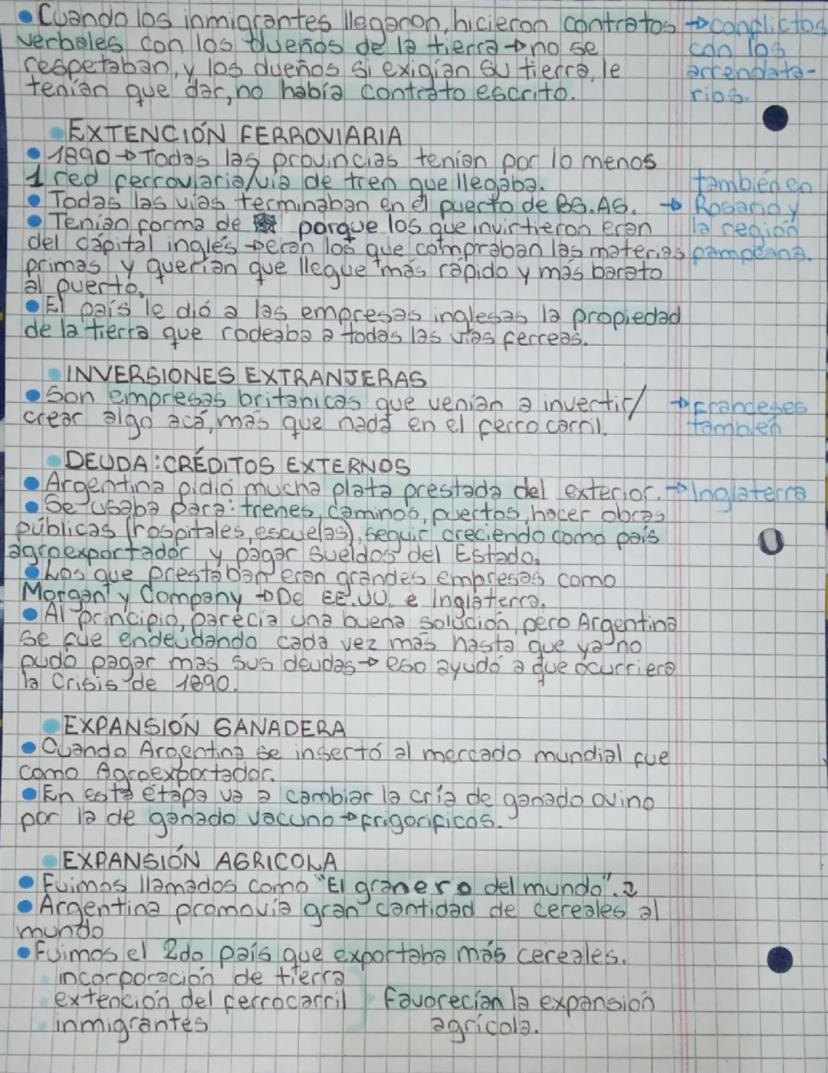 • Cuando los inmigrantes llegaron, hicieron contratos → conflictos
verbales con los dueños de la tierra → no se con los
respetaban, y los dueños si exigían su tierra, le arrendata-
tenían que dar, no había contrato escrito. rios.
• EXTENCIÓN FERROVIARIA
• 1890 → Todas las provincias tenían por lo menos
1 red ferroviaria/vía de tren que llegaba. también en
• Todas las vías terminaban en el puerto de BS.AS. → Rosario y
• Tenían forma de porque los que invirtieron eran la región
del capital inglés → eran los que compraban las materias pampeana.
primas y querían que llegue más rápido y más barato
al puerto.
• El país le dió a las empresas inglesas la propiedad
de la tierra que rodeaba a todas las vías ferreas.
• INVERSIONES EXTRANJERAS
• Son empresas britanicas que venían a invertir/ → franceses
crear algo acá, más que nada en el ferrocarril. también
• DEUDA: CRÉDITOS EXTERNOS
• Argentina pidió mucha plata prestada del exterior. → Inglaterra
• Se usaba para: trenes, caminos, puertos, hacer obras
públicas (hospitales, escuelas), seguir creciendo como país
agroexportador y pagar sueldos del Estado.
• Los que prestaban eran grandes empresas como
Morgan y Company → De EE.UU. e Inglaterra.
• Al principio, parecía una buena solución, pero Argentina
se fue endeudando cada vez más hasta que ya no
pudo pagar mas sus deudas → eso ayudó a que ocurriera
la Crisis de 1890.
• EXPANSIÓN GANADERA
• Cuando Argentina se insertó al mercado mundial fue
como Agroexportador.
• En esta etapa va a cambiar la cría de ganado ovino
por la de ganado vacuno → frigorificos.
• EXPANSIÓN AGRICOLA
• Fuimos llamados como "El granero del mundo".
• Argentina promovía gran cantidad de cereales al
mundo
• Fuimos el 2do país que exportaba más cereales.
incorporación de tierra
extención del ferrocarril } favorecían la expansión
inmigrantes agrícola.